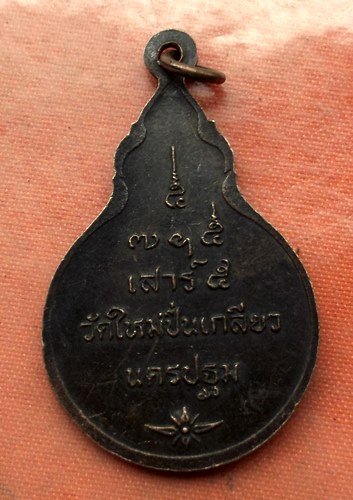 เสาร์ ๕
วัดใหม่ปิ่นเกลียว
นครปฐม